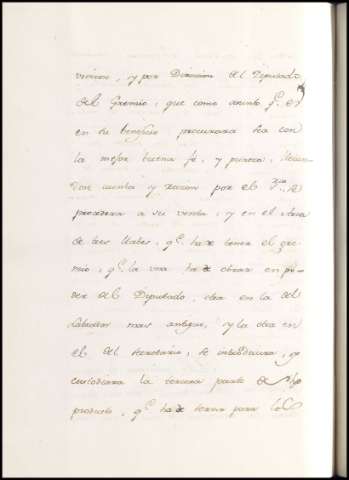 vieren, y por Direccion del Diputado
del Gremio, que como asunto q.e es
en su beneficio procurará sea con
la mejor buena fé, y pureza, lleban-
dose cuenta y razon por el
procederá a su venta, y en el Arca
de tres llabes, q.e ha de tener el gre-
mio, q.e la una ha de obrar en po-
der del Diputado, otra en la del
Labrador mas antiguo, y la otra en
el del Secretario, se introducirá, y
custodiara la tercera parte de su
producto, q.e ha de servir para los